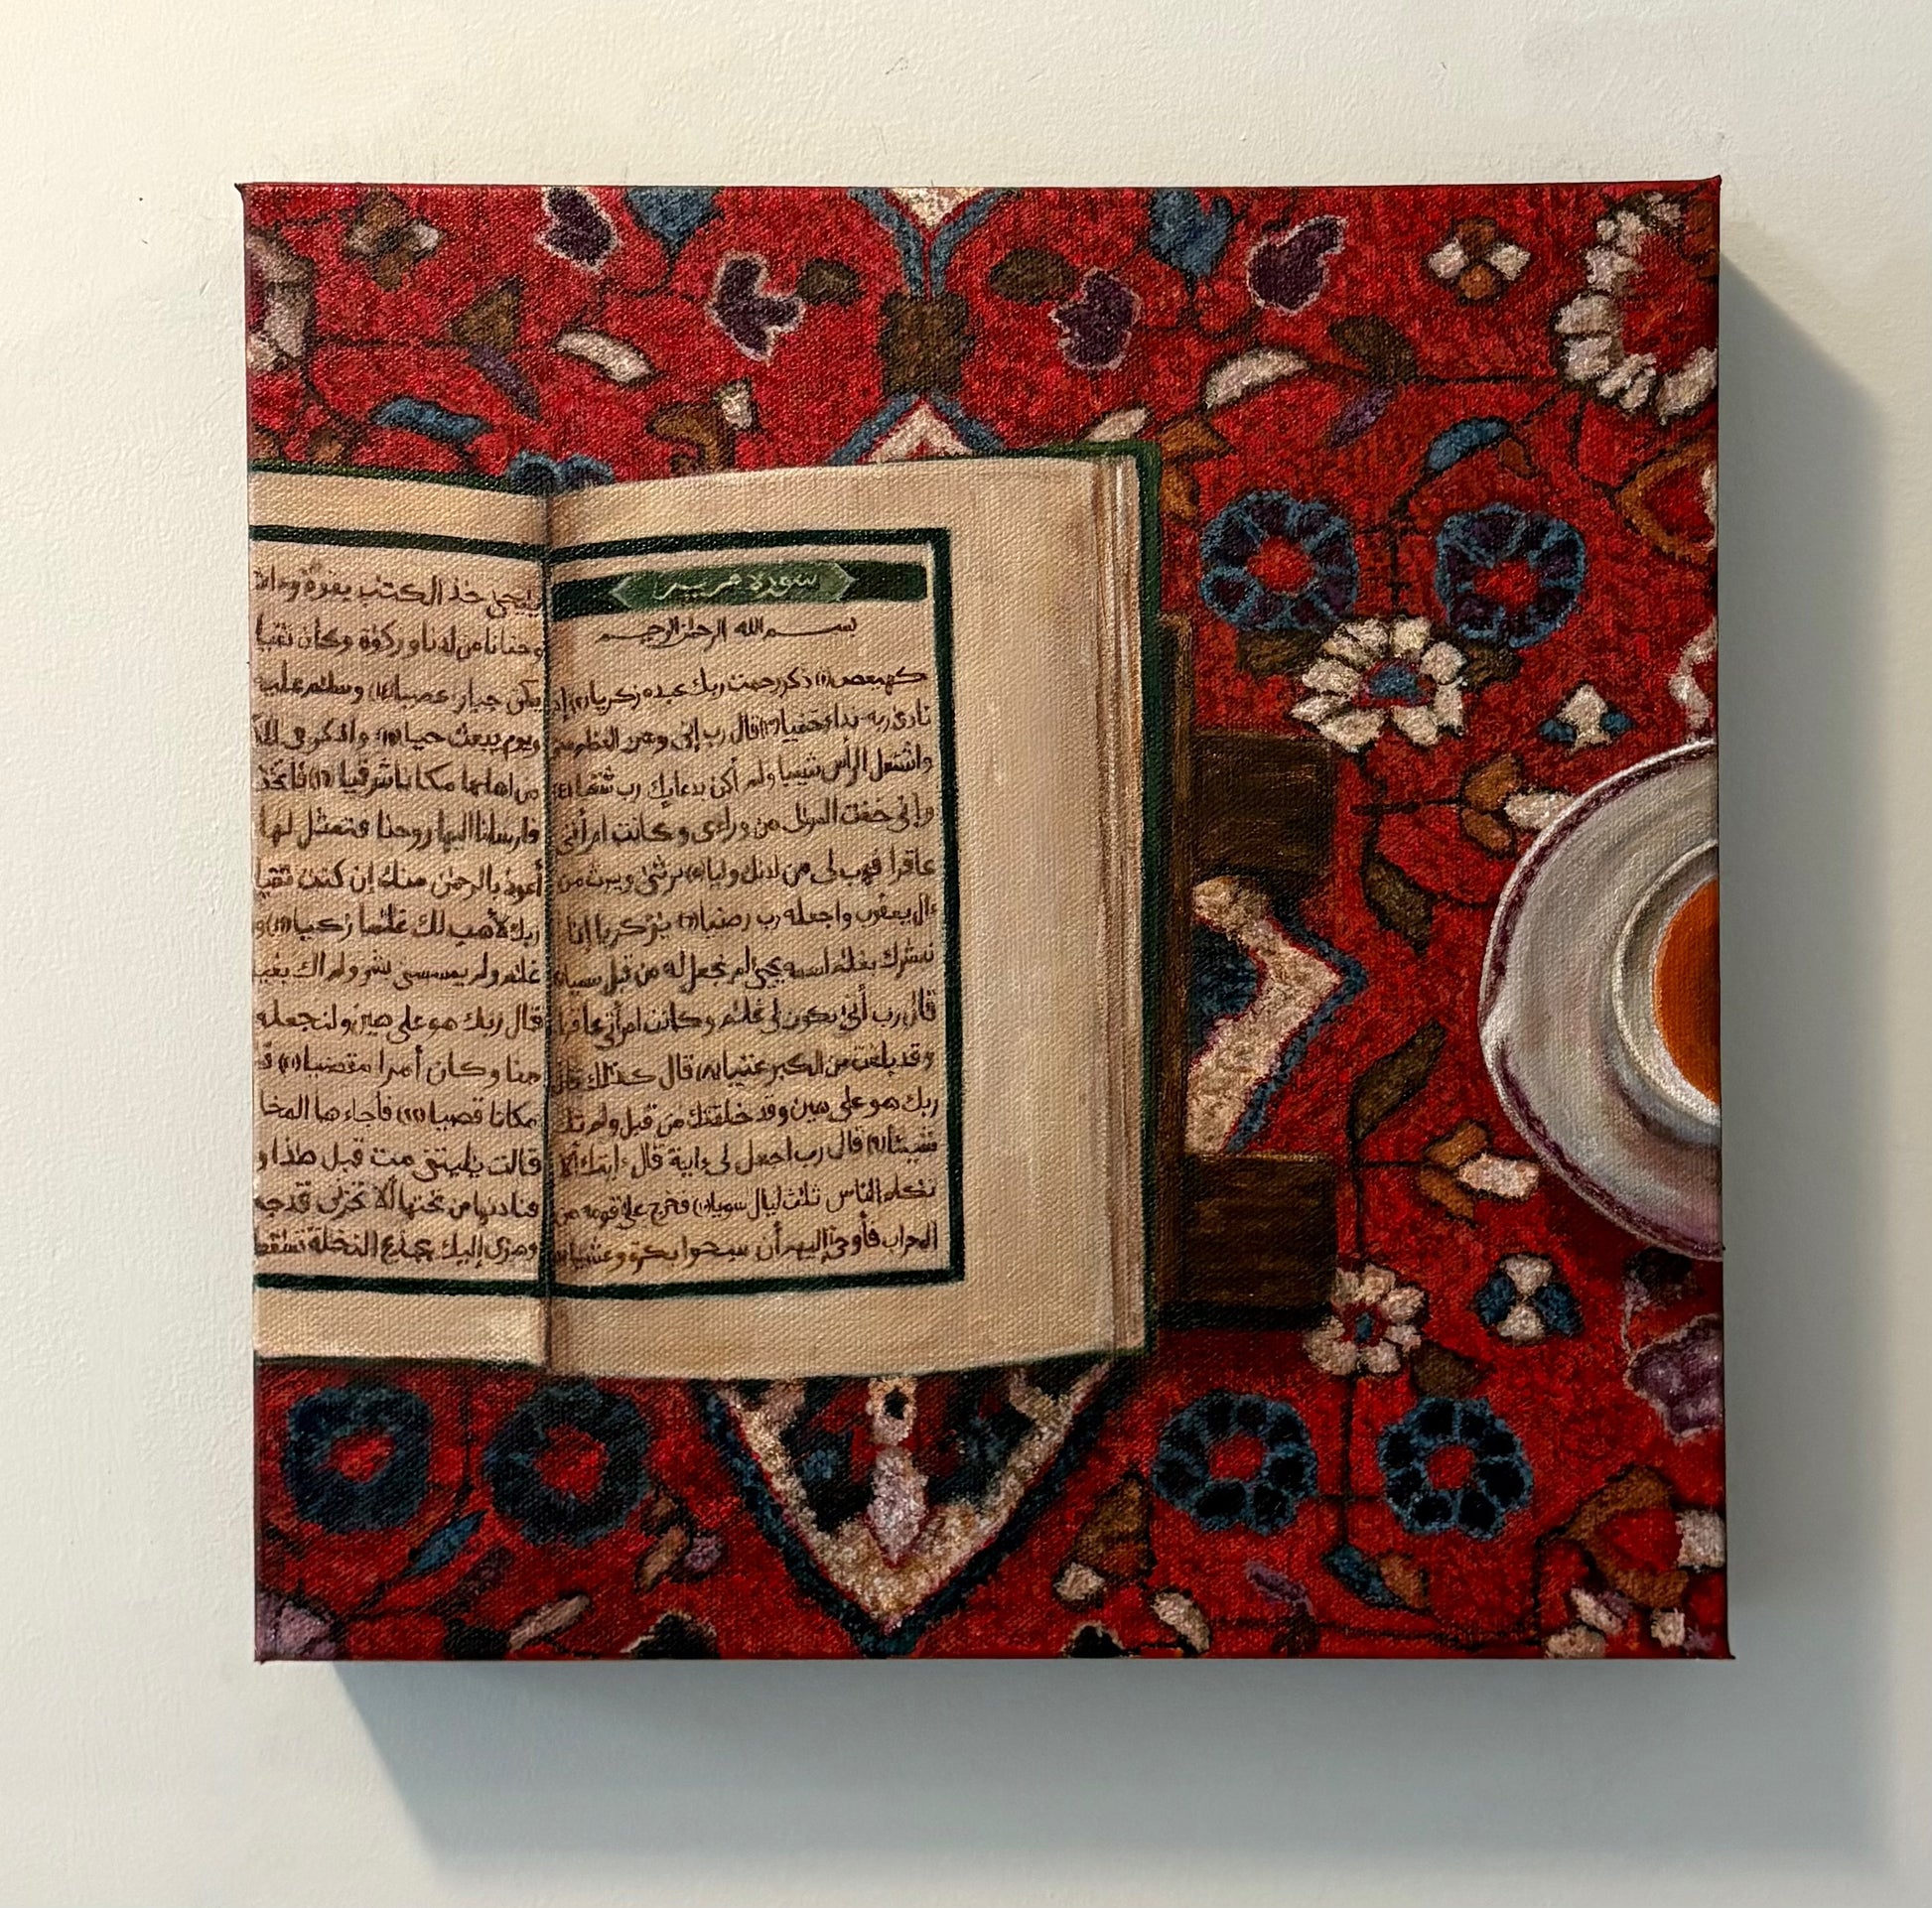 سورة مريم
بسم الله الرحمن الرحيم
كهيعص (١) ذكر رحمت ربك عبده زكريا (٢) إذ
نادى ربه نداء خفيا (٣) قال رب إنى وهن العظم منى
واشتعل الرأس شيبا ولم أكن بدعايك رب شقيا (٤)
وإنى خفت المولى من وراءى وكانت امرأتى
عاقرا فهب لى من لدنك وليا (٥) يرثنى ويرث من
ءال يعقوب واجعله رب رضيا (٦) يزكريا إنا
نبشرك بغلم اسمه يحيى لم نجعل له من قبل سميا (٧)
قال رب أنى يكون لى غلم وكانت امرأتى عاقرا
وقد بلغت من الكبر عتيا (٨) قال كذلك قال
ربك هو على هين وقد خلقتك من قبل ولم تك
شيئا (٩) قال رب اجعل لى ءاية قال ءايتك ألا
تكلم الناس ثلث ليال سويا (١٠) فخرج على قومه من
المحراب فأوحى إليهم أن سبحوا بكرة وعشيا
ييحيى خذ الكتب بقوة وءات
وحنانا من لدنا وزكوة وكان تقيا
يكن جبارا عصيا (١٤) وسلم عليه
ويوم يبعث حيا (١٥) واذكر فى الك
من اهلها مكانا شرقيا (١٦) فاتخذ
فارسلنا اليها روحنا فتمثل لها
أعوذ بالرحمن منك إن كنت تقيا
ربك لأهب لك غلما زكيا (١٩)
غلم ولم يمسسنى بشر ولم اك بغي
قال ربك هو على هين ولنجعله
منا وكان أمرا مقضيا (٢١) ف
مكانا قصيا (٢٢) فأجاءها المخا
قالت يليتنى مت قبل هذا و
فنادىها من تحتها ألا تحزنى قد جع
وهزى إليك بجذع النخلة تسقط